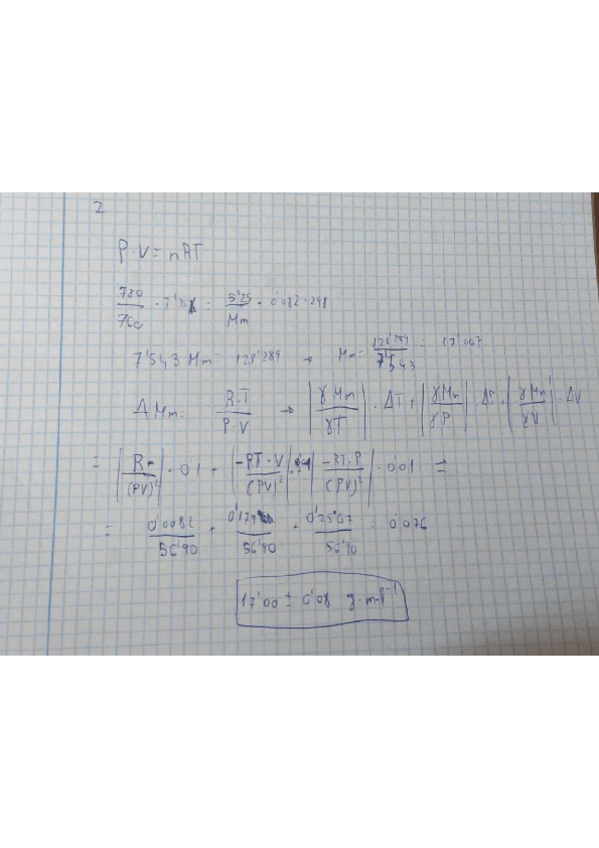 2
P·V = nRT
780/760 · 7'35 = 5'25/Mm · 0'082 · 298
7'543 Mm = 128'289 → Mm = 128'289/7'543 = 17'007
ΔMm: R·T/P·V → |γMm/γT| · ΔT + |γMm/γP| · ΔP + |γMm/γV| · ΔV
= |R/(PV)²| · 0'1 + |-RT·V/(PV)²| · |-RT·P/(PV)²| · 0'01 =
= 0'0082/56'90 + 0'179/56'90 + 0'2507/56'90 = 0'076
17'00 ± 0'08 g·mol⁻¹